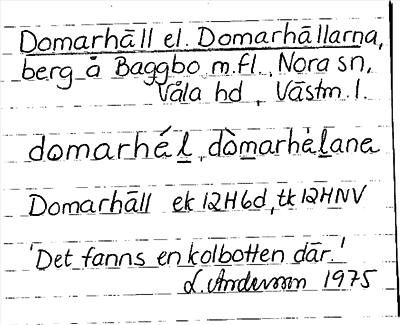 Domarhäll el. Domarhällarna,
berg å Baggbo m.fl., Nora sn,
Våla hd, Västm. l.
domarhél, dòmarhèlane
Domarhäll ek 12H6d, tk 12HNV
'Det fanns en kolbotten där.'
L. Andersson 1975